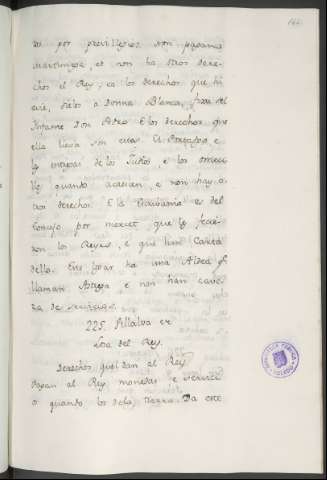 por privillejos non pagamos
martiniega, et non ha otros dere-
chos el Rey; ca los derechos que hi
havie, diolos a Donna Blanca, fixa del
Infante Don Pedro. E los derechos que
ella lieva son estos. El Portazgo, e
las entregas de los Judios, e los omeci-
llos quando acaecen, e non hay o-
tros derechos. E la Escribania es del
Concejo por mercet, que le ficie-
ron los Reyes, e que han Carta
dello. Este logar ha una Aldea q.
llaman e non han cave-
za de servicios.
225. Villalva es
del Rey.
Derechos que dan al Rey
Pagan al Rey monedas e servici-
o quando los de la tierra. Da este